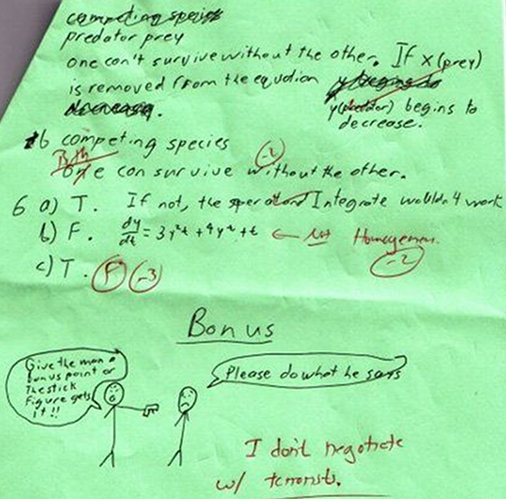 competing species
predator prey
one can't survive without the other. If x (prey)
is removed from the equation y begins to
decreasing. y(predator) begins to
decrease.
b competing species
Both
One can survive without the other. -2
6 a) T. If not, the Integrate wouldn't work
b) F. dy/dt = 3y²t + 4y² + t ← not Homogeneous. -2
c) T. F -3
Bonus
Give the man a
bonus point or
the stick
figure gets
it!!
Please do what he says
I don't negotiate
w/ terrorists.